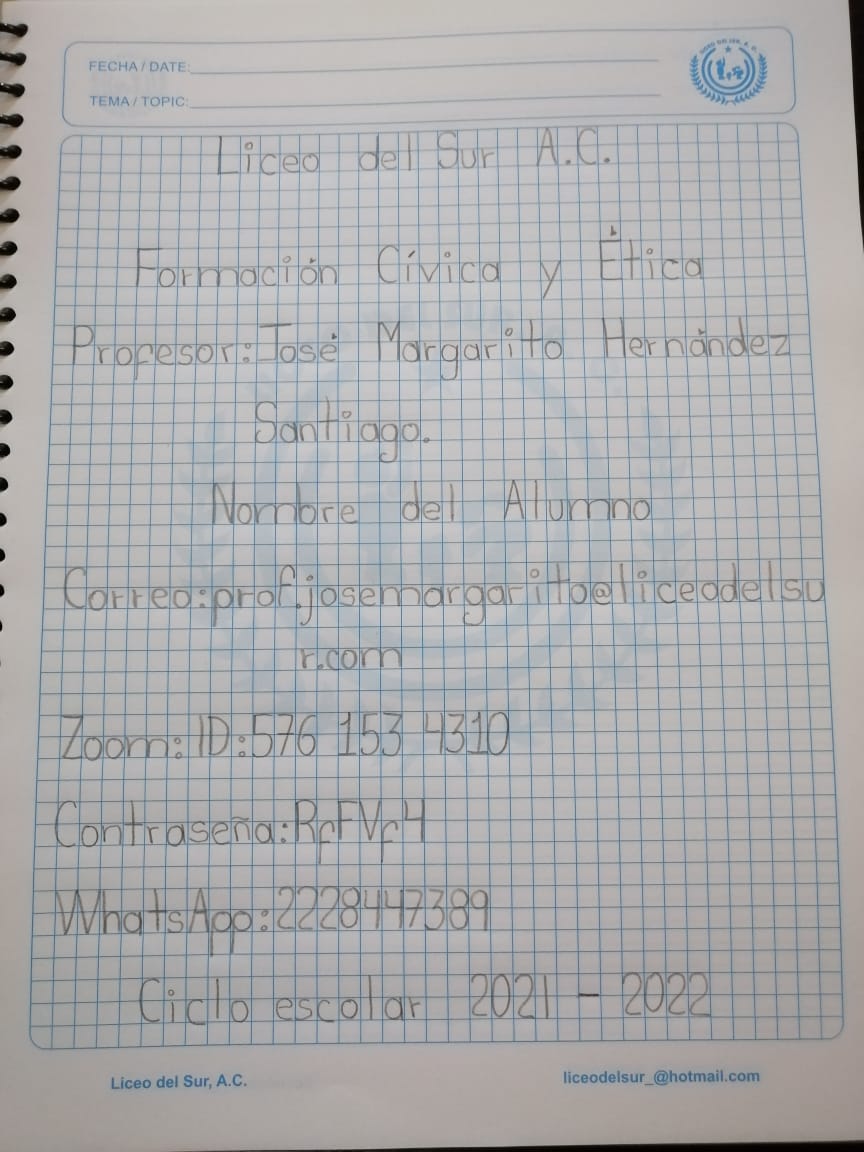 FECHA / DATE:
TEMA / TOPIC:
Liceo del Sur A.C.
Formación Cívica y Ética
Profesor: José Margarito Hernández
Santiago.
Nombre del Alumno
Correo:prof.josemargarito@liceodelsu
r.com
Zoom: ID:576 153 4310
Contraseña:RfFVf4
WhatsApp:2228447389
Ciclo escolar 2021 - 2022
Liceo del Sur, A.C.
liceodelsur_@hotmail.com